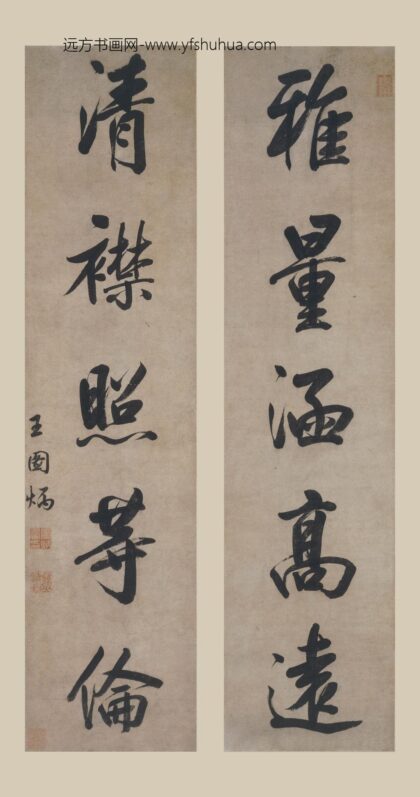 远方书画网-www.yfshuhua.com
雅量涵高遠
清襟照等倫
王圖炳